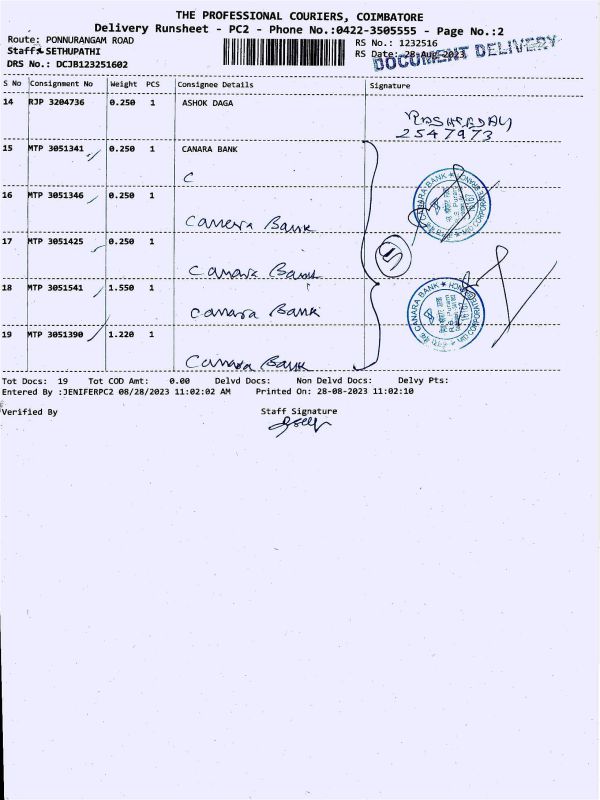 THE PROFESSIONAL COURIERS, COIMBATORE
Delivery Runsheet - PC2 - Phone No.:0422-3505555 - Page No.:2
Route: PONNURANGAM ROAD
RS No.: 1232516
Staff: SETHUPATHI
RS Date: 28-Aug-2023
DOCUMENT DELIVERY
DRS No.: DCJB123251602
S No Consignment No Weight PCS Consignee Details Signature
14 RJP 3204736 0.250 1 ASHOK DAGA
2547973
15 MTP 3051341 0.250 1 CANARA BANK
C
16 MTP 3051346 0.250 1
Canara Bank
17 MTP 3051425 0.250 1
Canara Bank
18 MTP 3051541 1.550 1
Canara Bank
19 MTP 3051390 1.220 1
Canara Bank
5
CANARA BANK
CANARA BANK
Tot Docs: 19 Tot COD Amt: 0.00 Delvd Docs: Non Delvd Docs: Delvy Pts:
Entered By :JENIFERPC2 08/28/2023 11:02:02 AM Printed On: 28-08-2023 11:02:10
Verified By Staff Signature